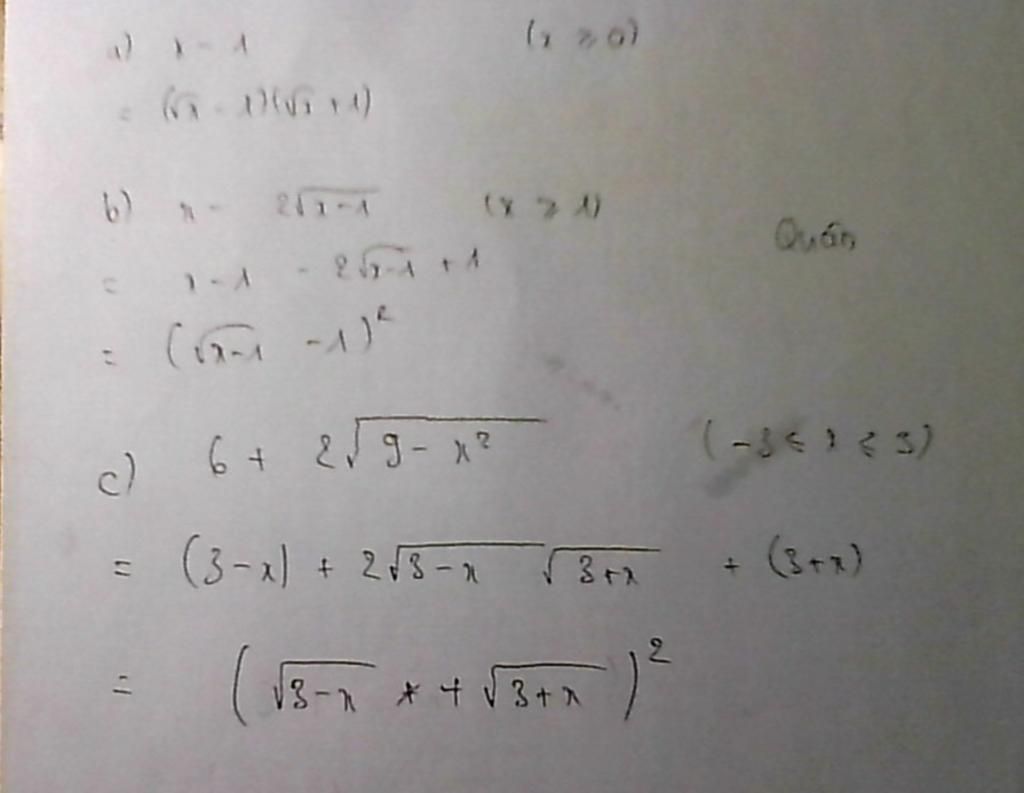 a) x - 1 (x ⩾ 0)
= (√x - 1)(√x + 1)
b) x - 2√(x-1) (x ⩾ 1)
Quân
= x-1 - 2√(x-1) + 1
= (√(x-1) - 1)²
c) 6 + 2√(9 - x²) (-3 ⩽ x ⩽ 3)
= (3-x) + 2√(3-x) √(3+x) + (3+x)
= (√(3-x) + √(3+x))²